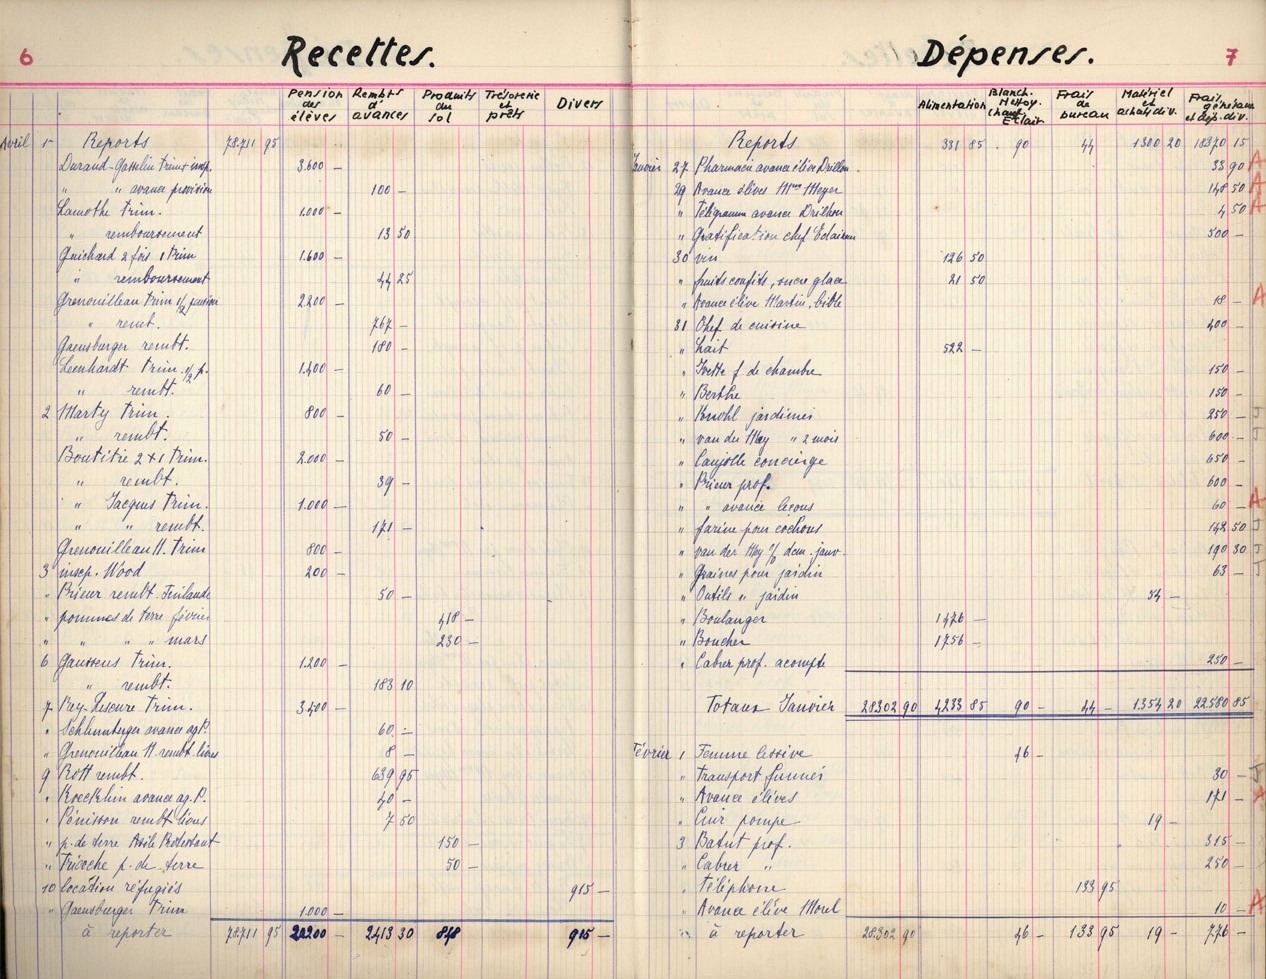 6
Recettes.
Pension des élèves
Rembts d'avances
Produits du sol
Trésorerie et prêts
Divers
Avril 1 Reports 78.711 95
Durand-Gasselin trim + insp. 3.600 —
" " avance provision 100 —
Lamothe trim. 1.000 —
" remboursement 13 50
Guichard 2 fois 1 trim 1.600 —
" remboursement 44 25
Grenouilleau trim 1/2 pension 2200 —
" remb. 767 —
Gaensburger rembt. 180 —
Leenhardt trim. 1/2 p. 1.400 —
" rembt. 60 —
2 Marty trim. 800 —
" rembt. 50 —
Boutitie 2 + 1 trim. 2.000 —
" rembt. 39 —
" Jacques trim. 1.000 —
" " rembt. 171 —
Grenouilleau H. trim 800 —
3 insep. Wood 200 —
" Brieur rembt. Finlande 50 —
" pommes de terre février 418 —
" " " " mars 230 —
6 Gaussens trim. 1.200 —
" rembt. 183 10
7 Rey-Lescure trim. 3.400 —
" avance 60 —
" Grenouilleau H rembt livres 8 —
9 Rott rembt. 639 95
" Koechlin avance ag. P. 40 —
" Pénisson rembt livres 7 50
" p. de terre Asile Protestant 150 —
" Tricoche p. de terre 50 —
10 location réfugiés 915 —
" Gaensburger trim 1.000 —
à reporter 78.711 95 22200 — 2413 30 848 915 —
7
Dépenses.
Alimentation
Blanch. Nettoy. Chauf. Eclair
Frais de bureau
Matériel et achats div.
Frais généraux et dép. div.
Reports 331 85 90 44 1300 20 18370 15
Janvier 27 Pharmacie avance élève Drilhon. 33 90 A
29 Avance élèves Mme Meyer 148 50 A
" Télégramm avance Drilhon 4 50 A
" Gratification chef Eclaireur 500 —
30 vin 126 50
" fruits confits, sucre glace 21 50
" Avance élève Martin, bible 18 — A
31 Chef de cuisine 400 —
" Lait 522 —
" Yvette f. de chambre 150 —
" Berthe 150 —
" Knohl jardinier 250 — J
" van der Hey " 2 mois 600 — J
" Caujolle concierge 650 —
" Brieur prof. 600 —
" " avance leçons 60 — A
" farine pour cochons 142 50 J
" van der Hey % dem. janv. 190 30 J
" Graines pour jardin 63 — J
" Outils " jardin 54 —
" Boulanger 1476 —
" Boucher 1756 —
" Cabrer prof. acompte 250 —
Totaux Janvier 28302 90 4233 85 90 — 44 — 1354 20 22580 85
Février 1 Femme lessive 46 —
" Transport fumier 30 — J
" Avance élèves 171 — A
" Cuir pompe 19 —
3 Batut prof. 315 —
" Cabrer " 250 —
" Téléphone 133 95
" Avance élève Morel 10 — A
" à reporter 28302 90 46 — 133 95 19 — 776 —